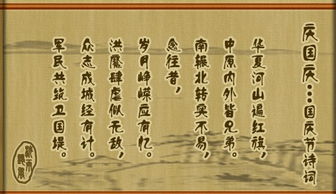 庆国庆:::国庆节诗词
华夏河山遍红旗，
中原内外皆兄弟。
南辕北转实不易，
念往昔，
岁月峥嵘应有忆。
洪魔肆虐似无敌，
众志成城经有计。
军民共筑卫国堤。